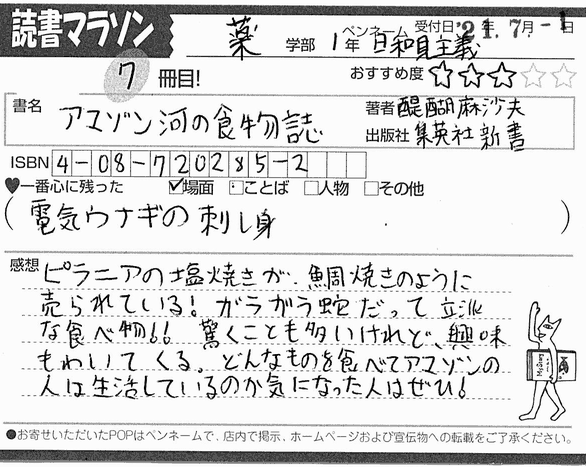 読書マラソン
薬 学部 1年 ペンネーム 日和見主義 受付日 '21年 7月 -1日
7 冊目! おすすめ度 ☆☆☆☆☆
書名 アマゾン河の食物誌
著者 醍醐麻沙夫
出版社 集英社新書
ISBN 4-08-720285-2
♥一番心に残った ☑場面 □ことば □人物 □その他
(電気ウナギの刺し身)
感想 ピラニアの塩焼きが、鯛焼きのように
売られている! ガラガラ蛇だって立派
な食べ物!! 驚くことも多いけれど、興味
もわいてくる。どんなものを食べてアマゾンの
人は生活しているのか気になった人はぜひ!
●お寄せいただいたPOPはペンネームで、店内で掲示、ホームページおよび宣伝物への転載をご了承ください。